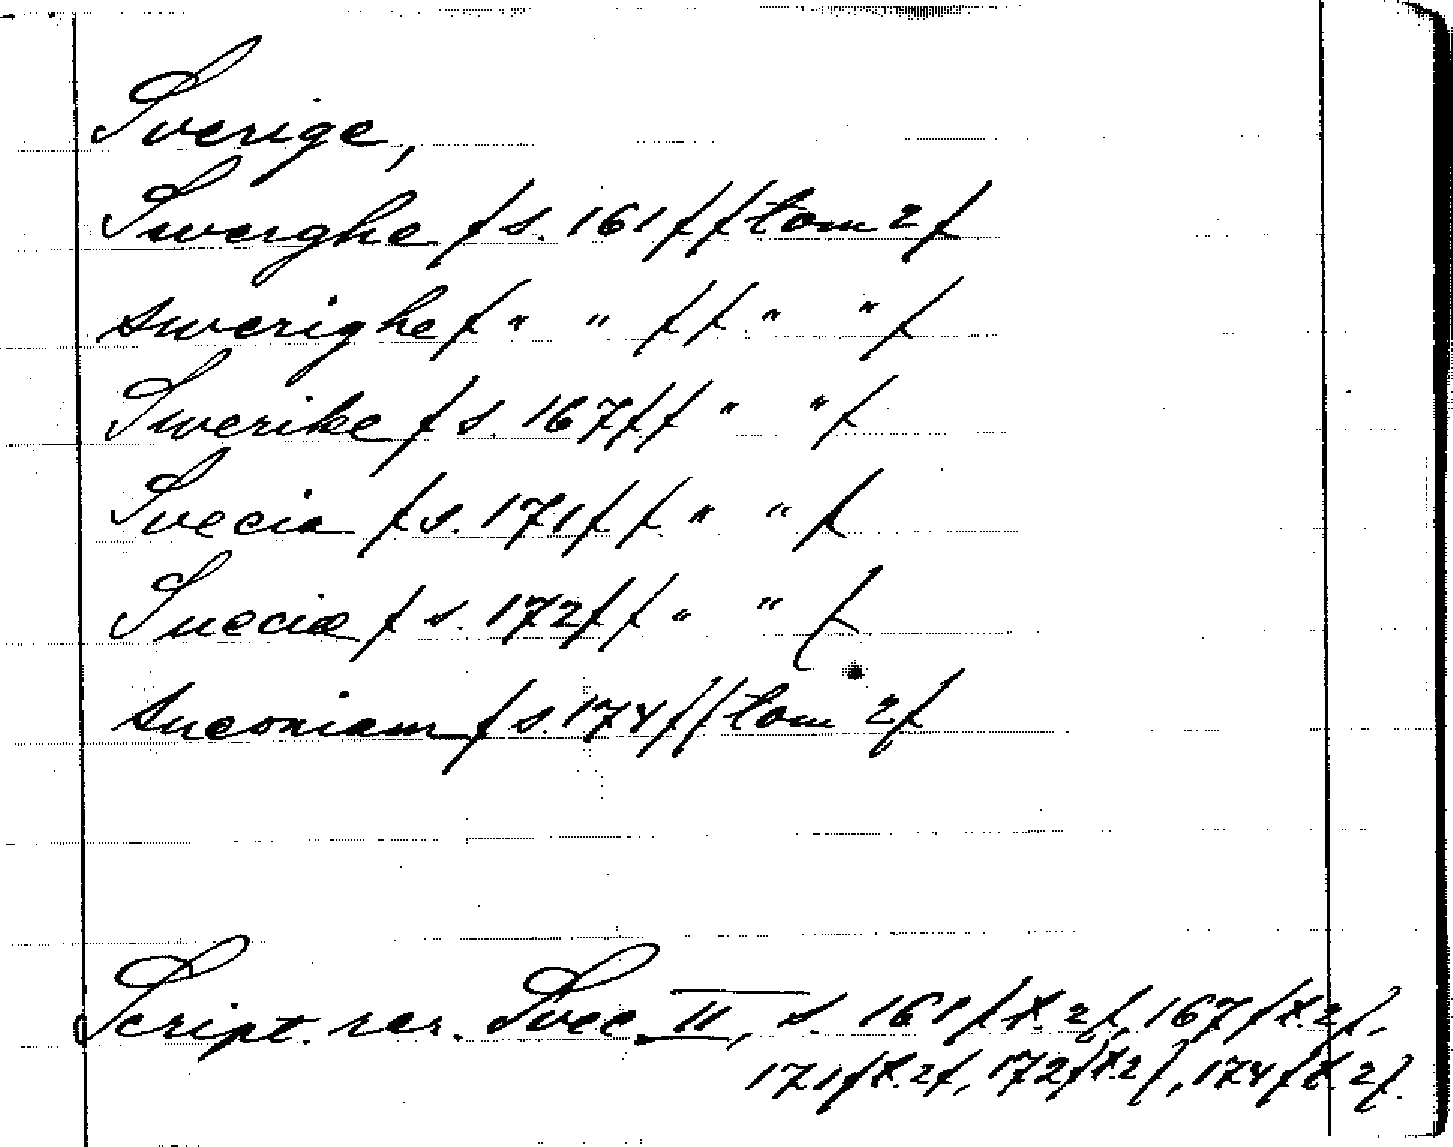 Sverige,
Swerghe / s. 161 / / tom 2 /
swerighe / " " / / " " /
Swerike / s. 167 / / " " /
Svecia / s. 171 / / " " /
Suecia / s. 172 / / " " /
sueoniam / s. 174 / / tom 2 /
Script. rer. Svec. II, s. 161 / t. 2 /, 167 / t. 2 /,
171 / t. 2 /, 172 / t. 2 /, 174 / t. 2 /.